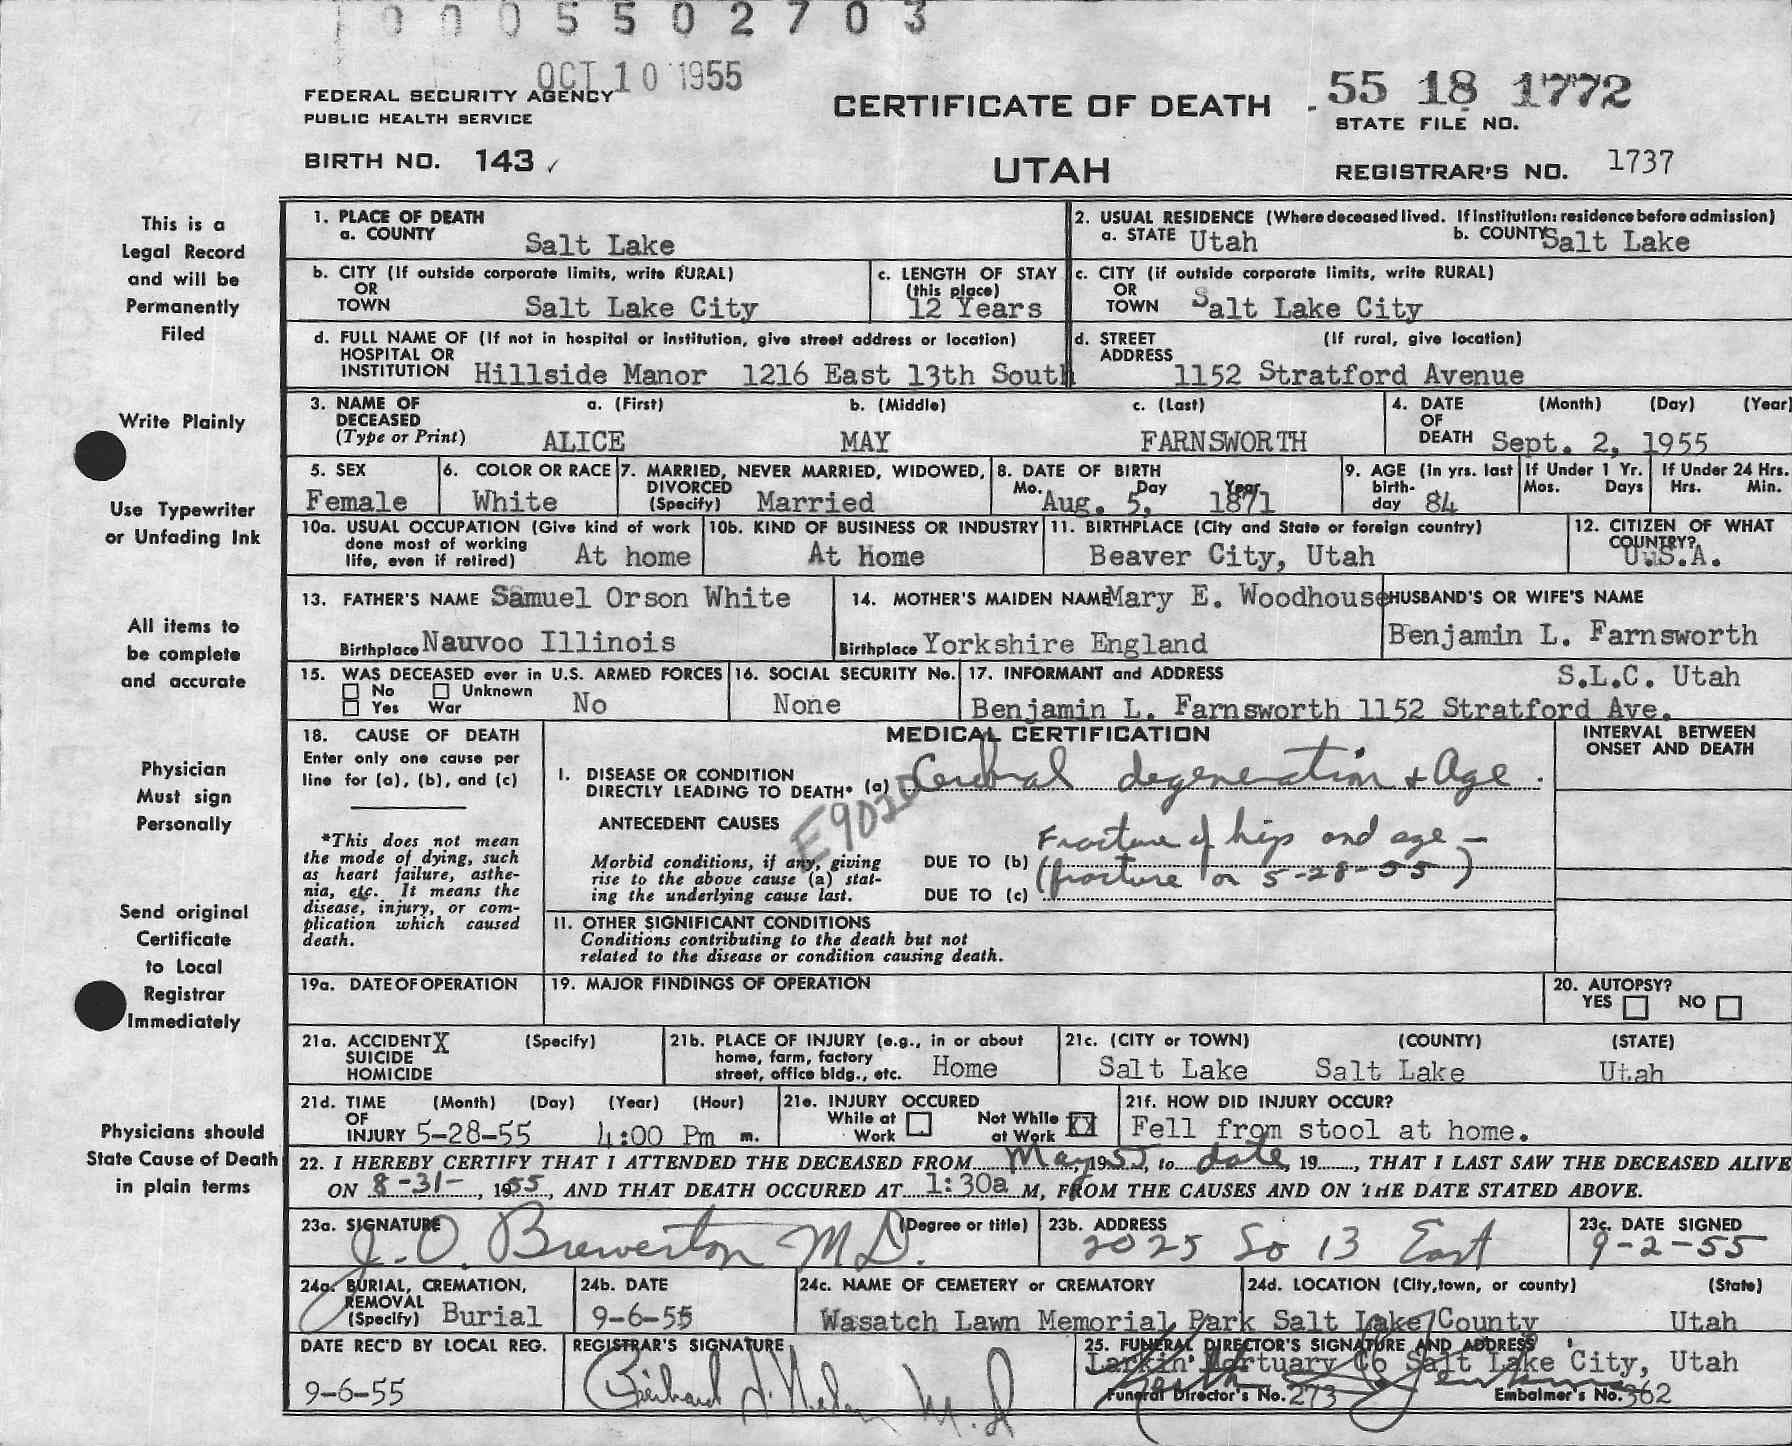 0005502703
OCT 10 1955
FEDERAL SECURITY AGENCY
PUBLIC HEALTH SERVICE
BIRTH NO. 143 ✓
CERTIFICATE OF DEATH
UTAH
55 18 1772
STATE FILE NO.
REGISTRAR'S NO. 1737
This is a
Legal Record
and will be
Permanently
Filed
Write Plainly
Use Typewriter
or Unfading Ink
All items to
be complete
and accurate
Physician
Must sign
Personally
Send original
Certificate
to Local
Registrar
Immediately
Physicians should
State Cause of Death
in plain terms
1. PLACE OF DEATH
a. COUNTY Salt Lake
2. USUAL RESIDENCE (Where deceased lived. If institution: residence before admission)
a. STATE Utah b. COUNTY Salt Lake
b. CITY (If outside corporate limits, write RURAL)
OR
TOWN Salt Lake City
c. LENGTH OF STAY
(this place)
12 Years
c. CITY (if outside corporate limits, write RURAL)
OR
TOWN Salt Lake City
d. FULL NAME OF (If not in hospital or institution, give street address or location)
HOSPITAL OR
INSTITUTION Hillside Manor 1216 East 13th South
d. STREET (If rural, give location)
ADDRESS
1152 Stratford Avenue
3. NAME OF a. (First) b. (Middle) c. (Last)
DECEASED
(Type or Print) ALICE MAY FARNSWORTH
4. DATE (Month) (Day) (Year)
OF
DEATH Sept. 2, 1955
5. SEX
Female
6. COLOR OR RACE
White
7. MARRIED, NEVER MARRIED, WIDOWED,
DIVORCED
(Specify) Married
8. DATE OF BIRTH
Mo. Day Year
Aug. 5, 1871
9. AGE (In yrs. last
birth-
day 84
If Under 1 Yr.
Mos. Days
If Under 24 Hrs.
Hrs. Min.
10a. USUAL OCCUPATION (Give kind of work
done most of working
life, even if retired) At home
10b. KIND OF BUSINESS OR INDUSTRY
At Home
11. BIRTHPLACE (City and State or foreign country)
Beaver City, Utah
12. CITIZEN OF WHAT
COUNTRY?
U.S.A.
13. FATHER'S NAME Samuel Orson White
Birthplace Nauvoo Illinois
14. MOTHER'S MAIDEN NAME Mary E. Woodhouse
Birthplace Yorkshire England
HUSBAND'S OR WIFE'S NAME
Benjamin L. Farnsworth
15. WAS DECEASED ever in U.S. ARMED FORCES
No Unknown
Yes War No
16. SOCIAL SECURITY No.
None
17. INFORMANT and ADDRESS S.L.C. Utah
Benjamin L. Farnsworth 1152 Stratford Ave.
18. CAUSE OF DEATH
Enter only one cause per
line for (a), (b), and (c)
*This does not mean
the mode of dying, such
as heart failure, asthe-
nia, etc. It means the
disease, injury, or com-
plication which caused
death.
MEDICAL CERTIFICATION
INTERVAL BETWEEN
ONSET AND DEATH
I. DISEASE OR CONDITION
DIRECTLY LEADING TO DEATH* (a) Cerebral degeneration + Age.
ANTECEDENT CAUSES
Morbid conditions, if any, giving
rise to the above cause (a) stat-
ing the underlying cause last.
DUE TO (b) Fracture of hips and age —
DUE TO (c) (fracture on 5-28-55)
II. OTHER SIGNIFICANT CONDITIONS
Conditions contributing to the death but not
related to the disease or condition causing death.
19a. DATE OF OPERATION
19. MAJOR FINDINGS OF OPERATION
20. AUTOPSY?
YES NO
21a. ACCIDENT X (Specify)
SUICIDE
HOMICIDE
21b. PLACE OF INJURY (e.g., in or about
home, farm, factory
street, office bldg., etc. Home
21c. (CITY or TOWN) (COUNTY) (STATE)
Salt Lake Salt Lake Utah
21d. TIME (Month) (Day) (Year) (Hour)
OF
INJURY 5-28-55 4:00 Pm m.
21e. INJURY OCCURED
While at
Work
Not While
at Work XX
21f. HOW DID INJURY OCCUR?
Fell from stool at home.
22. I HEREBY CERTIFY THAT I ATTENDED THE DECEASED FROM May, 1955, to date, 19....., THAT I LAST SAW THE DECEASED ALIVE
ON 8-31-, 1955, AND THAT DEATH OCCURED AT 1:30a M, FROM THE CAUSES AND ON THE DATE STATED ABOVE.
23a. SIGNATURE (Degree or title)
J. O. Brewerton M.D.
23b. ADDRESS
2025 So 13 East
23c. DATE SIGNED
9-2-55
24a. BURIAL, CREMATION,
REMOVAL
(Specify) Burial
24b. DATE
9-6-55
24c. NAME OF CEMETERY or CREMATORY
Wasatch Lawn Memorial Park
24d. LOCATION (City, town, or county) (State)
Salt Lake County Utah
DATE REC'D BY LOCAL REG.
9-6-55
REGISTRAR'S SIGNATURE
M.D
25. FUNERAL DIRECTOR'S SIGNATURE AND ADDRESS
Larkin Mortuary Co Salt Lake City, Utah
Funeral Director's No. 273 Embalmer's No. 362